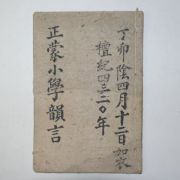 丁卯陰四月十二日如衣
檀紀四三二○年
正蒙小學韻言